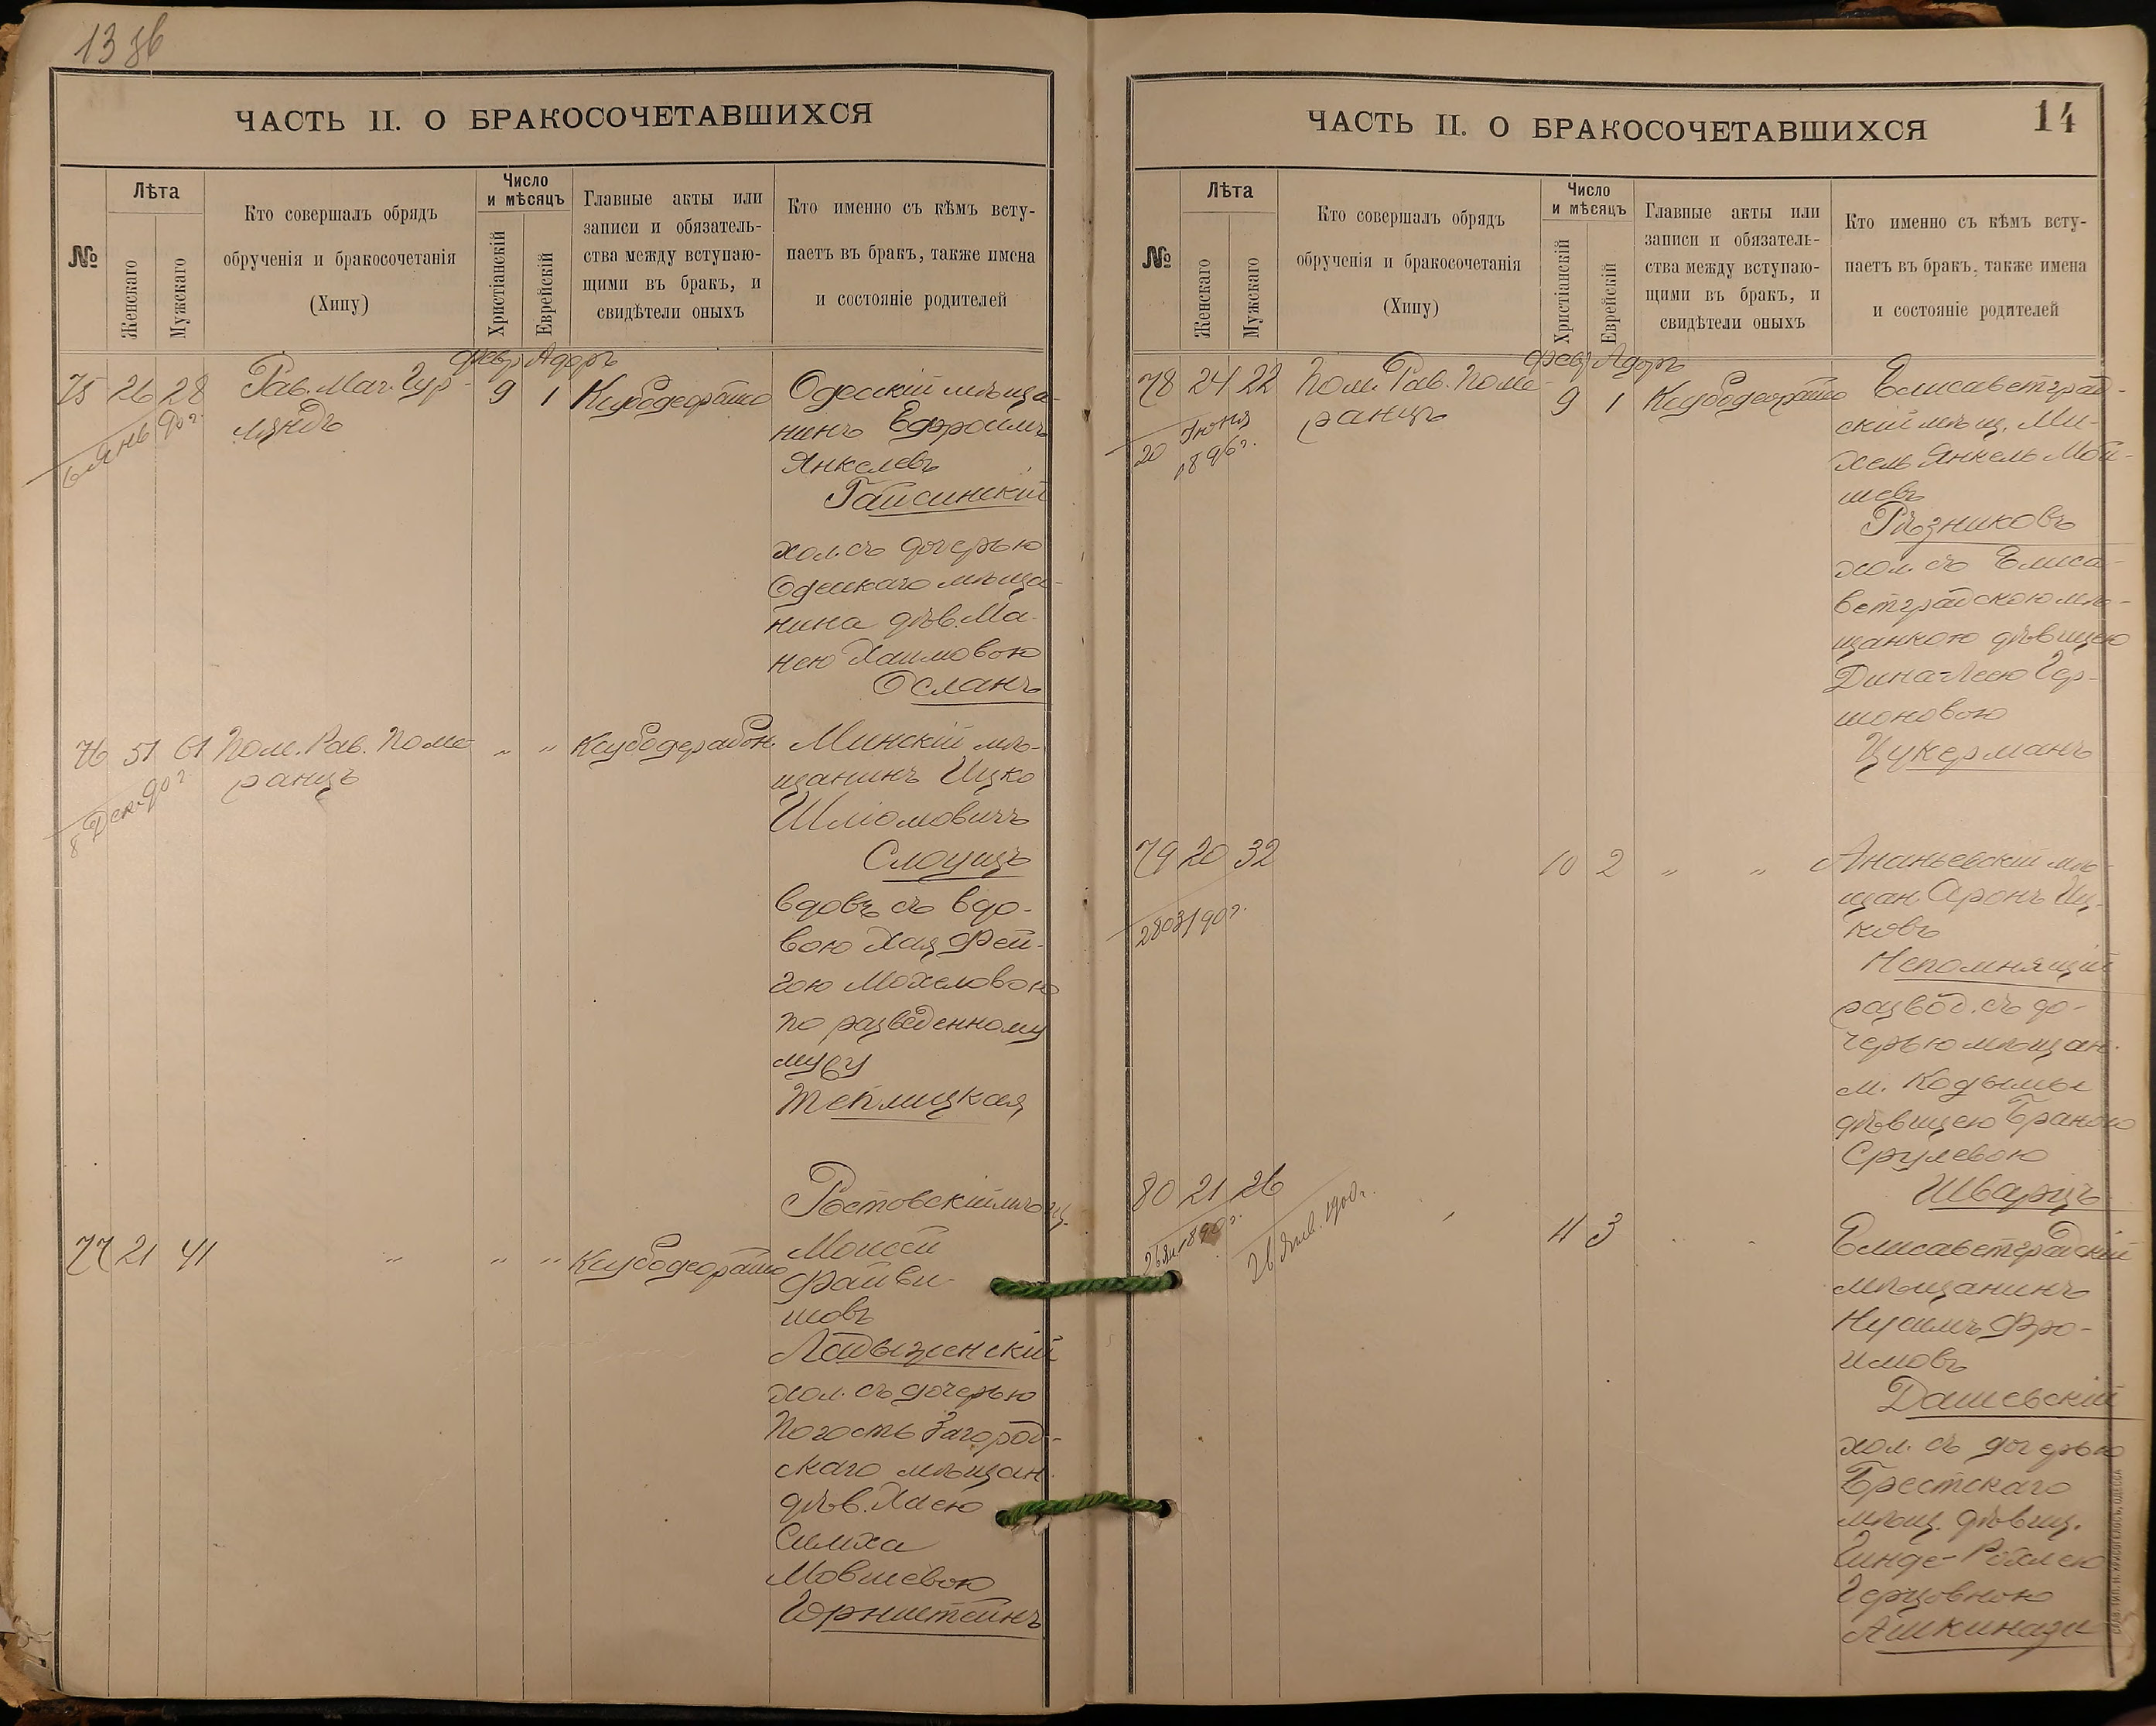 13 зв
ЧАСТЬ II. О БРАКОСОЧЕТАВШИХСЯ
№
Лѣта
Женскаго
Мужскаго
Кто совершалъ обрядъ
обрученія и бракосочетанія
(Хипу)
Число
и мѣсяцъ
Христіанскій
Еврейскій
Главные акты или
записи и обязатель-
ства между вступаю-
щими въ бракъ, и
свидѣтели оныхъ
Кто именно съ кѣмъ всту-
паетъ въ бракъ, также имена
и состояніе родителей
Февр Адоръ
75 26 28
Рав. Маг. Гур-
ляндъ
9 1
Одесскій мѣща-
нинъ Ефроимъ
Янкелевъ
Гайсинскій
хол. съ дочерью
Одесскаго мѣща-
нина дѣв. Ма-
нею Хаимовою
Осланъ
76 51 61
Пом. Рав. Поме-
ранцъ
8 Дек. 90 г
" "
Минскій мѣ-
щанинъ Ицко
Шліомовичъ
Слоущъ
вдовъ съ вдо-
вою Хая Фей-
гою Мохеловою
по разведенному
мужу
Теплицкая
77 21 41
" " "
Ростовскій мѣщ.
Моисей
Файви-
шовъ
Ладыженскій
хол. съ дочерью
Погость Загород-
скаго мѣщан.
дѣв. Хаею
Симха
Мовшевою
Горнштейнъ
ЧАСТЬ II. О БРАКОСОЧЕТАВШИХСЯ
14
№
Лѣта
Женскаго
Мужскаго
Кто совершалъ обрядъ
обрученія и бракосочетанія
(Хипу)
Число
и мѣсяцъ
Христіанскій
Еврейскій
Главные акты или
записи и обязатель-
ства между вступаю-
щими въ бракъ, и
свидѣтели оныхъ
Кто именно съ кѣмъ всту-
паетъ въ бракъ, также имена
и состояніе родителей
Февр Адоръ
78 24 22
20 Іюня
1896 г.
Пом. Рав. Поме-
ранцъ
9 1
Елисаветград-
скій мѣщ. Ми-
хель Янкель Мой-
шевъ
Рѣзниковъ
хол. съ Елиса-
ветградскою мѣ-
щанкою дѣвицею
Дина-Леею Гер-
шоновою
Цукерманъ
79 20 32
10 2
" "
Ананьевскій мѣ-
щан. Аронъ Иц-
ковъ
Непомнящій
развод. съ до-
черью мѣщан.
м. Кодымы
дѣвицею Браною
Срулевою
Шварцъ
80 21 26
26 Янв. 1900 г.
11 3
Елисаветградскій
мѣщанинъ
Нусимъ Фро-
имовъ
Дашевскій
хол. съ дочерью
Брестскаго
мѣщ. дѣвиц.
Гинде-Рохлею
Герцовною
Ашкинази